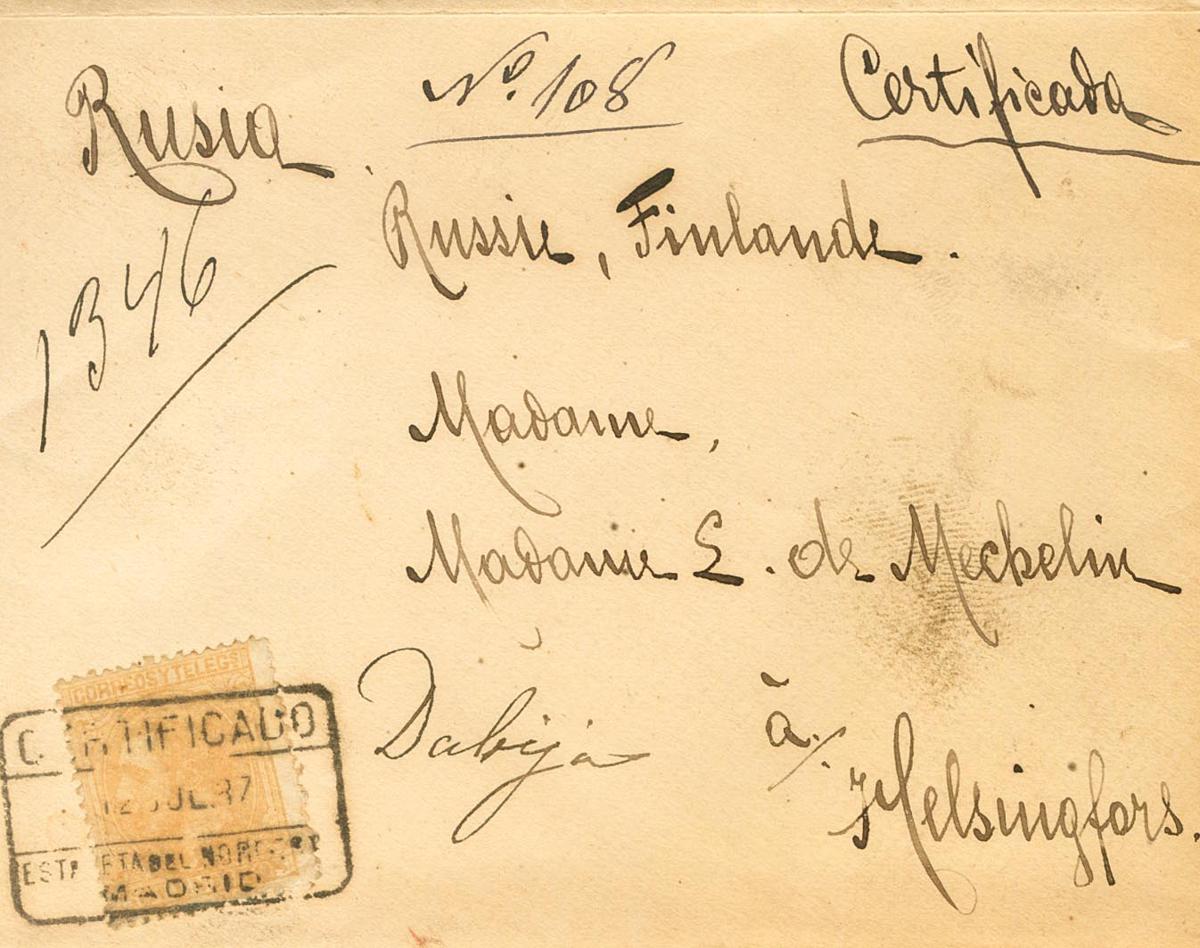 Rusia
Nº. 108
Certificada
1346
Russie, Finlande.
Madame,
Madame L. de Meckelin
Dabija
à
Helsingfors.
CORREOS Y TELEGS
CERTIFICADO
12 JUL. 87
ESTAFETA DEL NORTE
MADRID